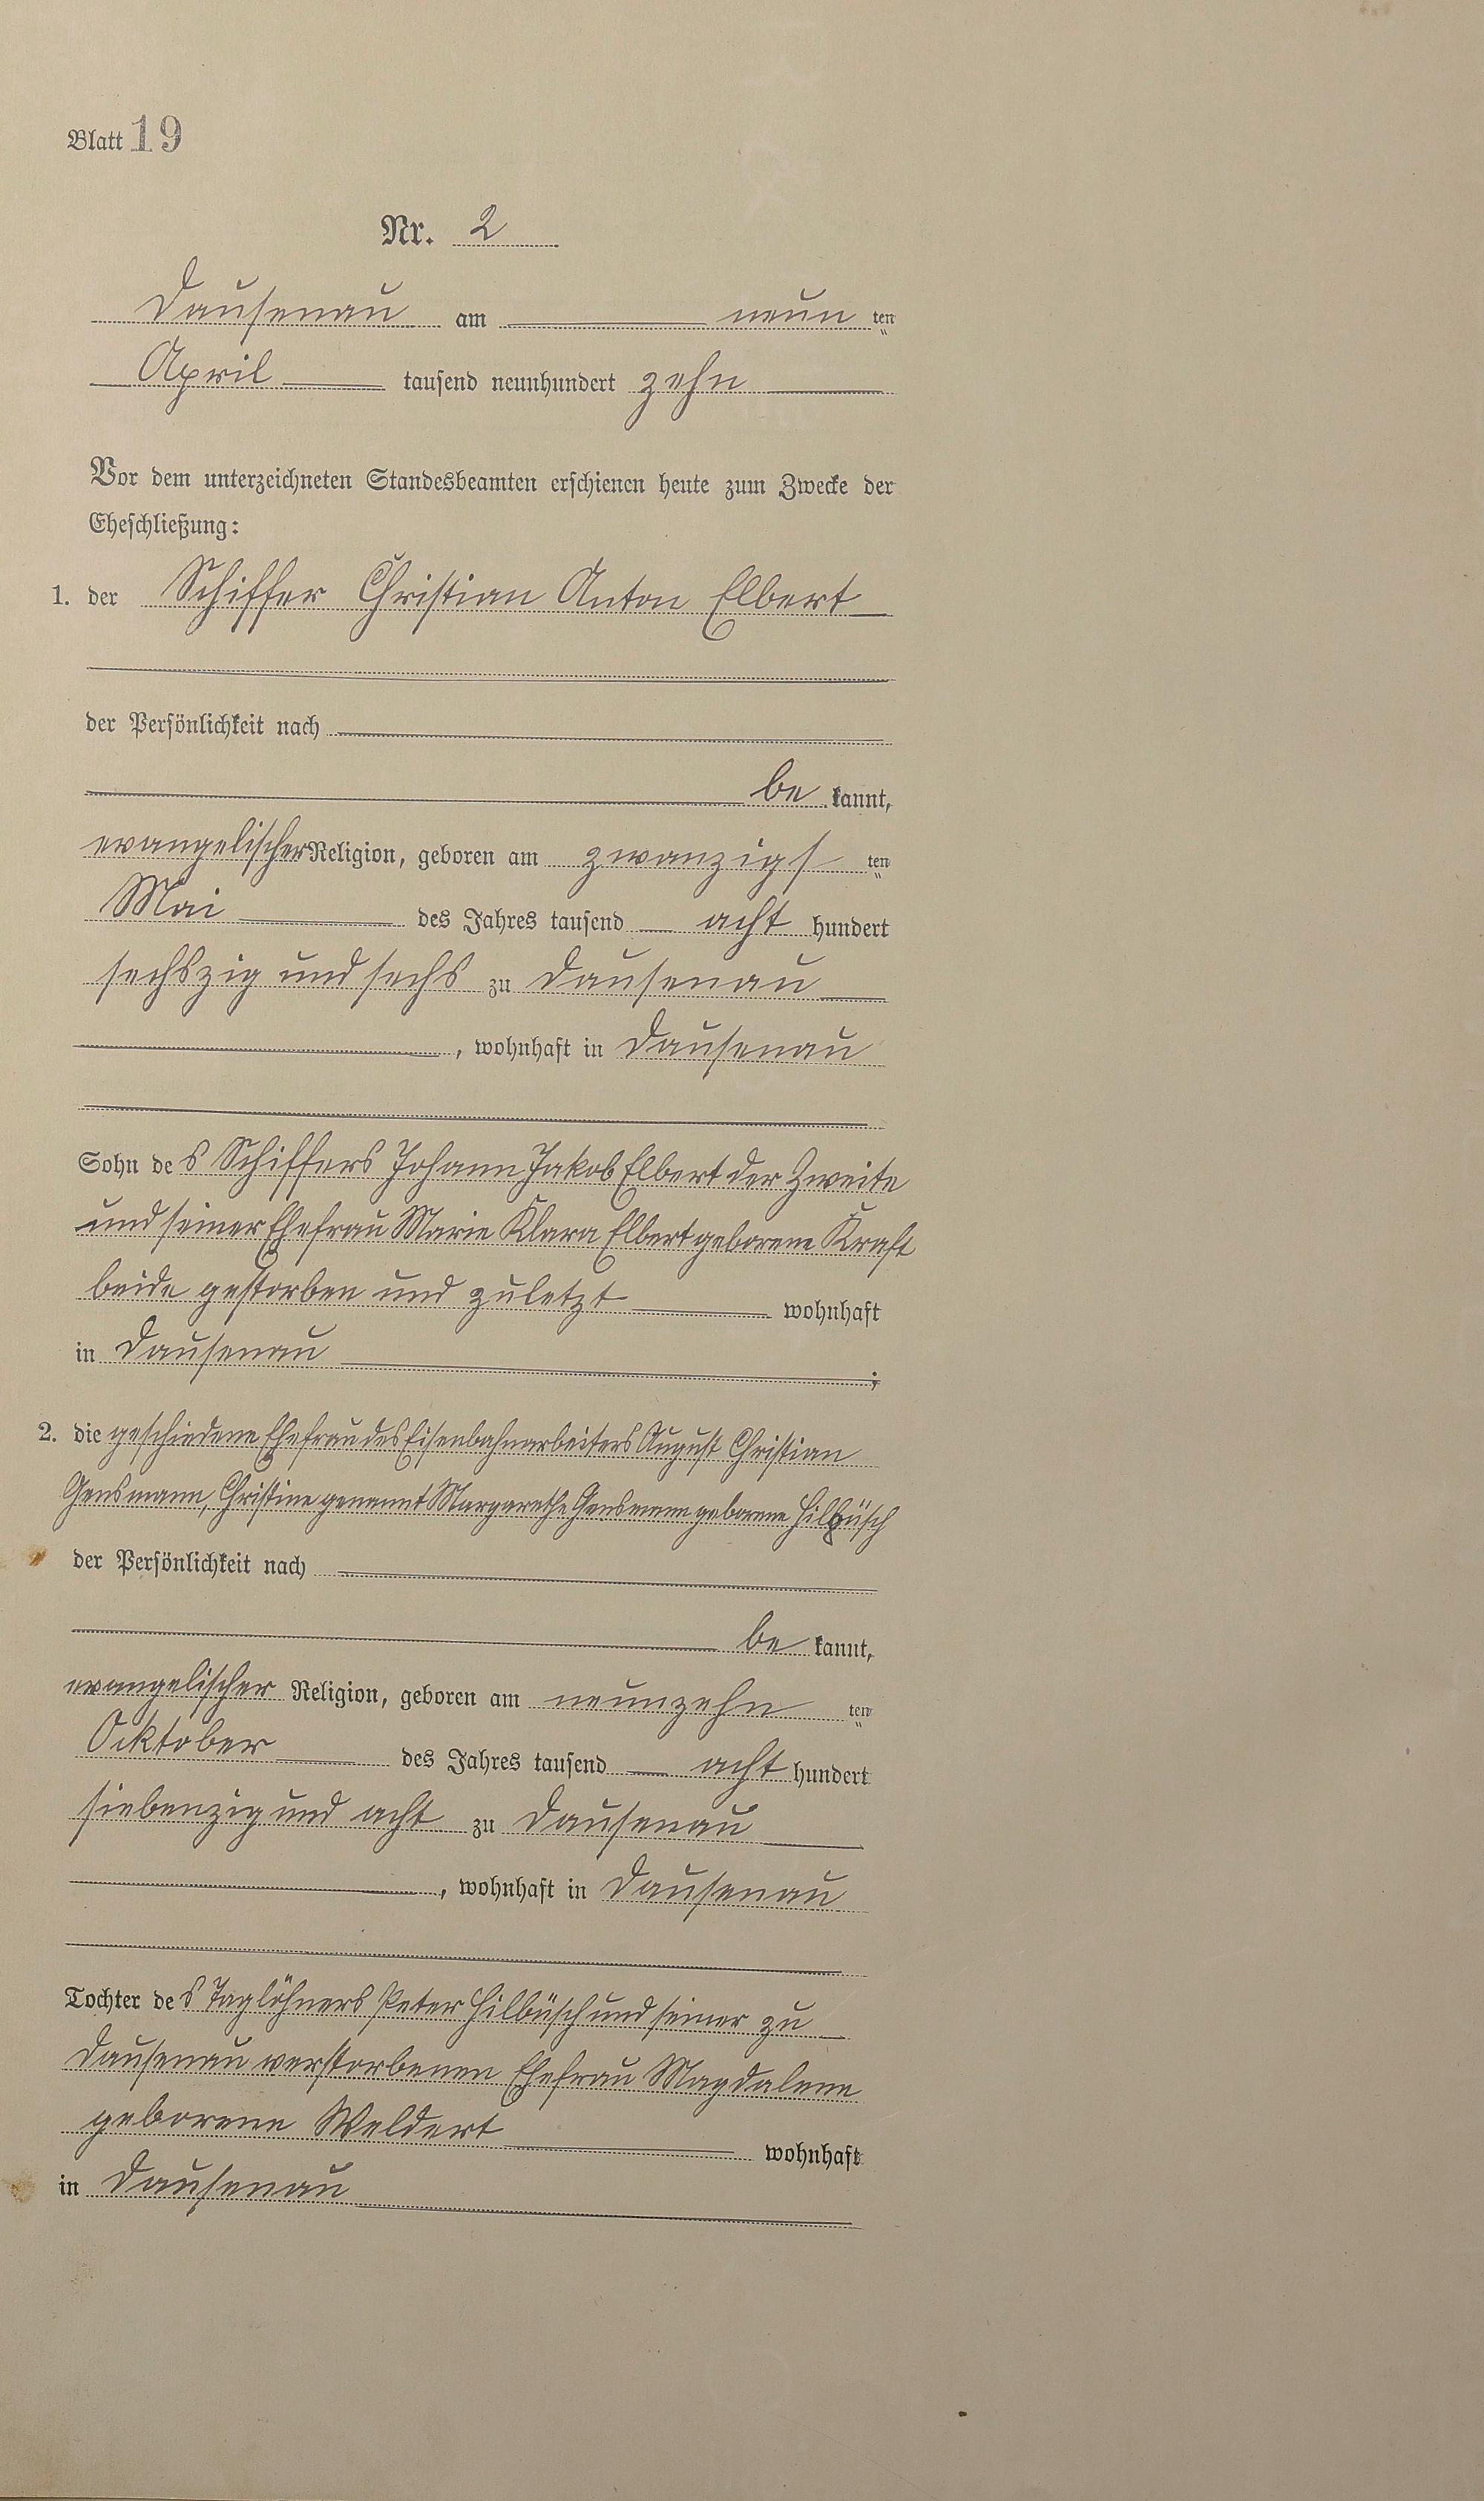 Blatt 19
Nr. 2
Dausenau am neun ten
April tausend neunhundert zehn
Vor dem unterzeichneten Standesbeamten erschienen heute zum Zwecke der
Eheschließung:
1. der Schiffer Christian Anton Elbert
der Persönlichkeit nach
be kannt,
evangelischer Religion, geboren am zwanzigs ten
Mai des Jahres tausend acht hundert
sechszig und sechs zu Dausenau
, wohnhaft in Dausenau
Sohn des Schiffers Johann Jakob Elbert der Zweite
und seiner Ehefrau Marie Klara Elbert geborene Kraft
beide gestorben und zuletzt wohnhaft
in Dausenau ;
2. die geschiedene Ehefrau des Eisenbahnarbeiters August Christian
Gensmann, Christine genannt Margarethe Gensmann geborene Hilbüsch
der Persönlichkeit nach
be kannt,
evangelischer Religion, geboren am neunzehn ten
Ocktober des Jahres tausend acht hundert
siebenzig und acht zu Dausenau
, wohnhaft in Dausenau
Tochter des Taglöhners Peter Hilbüsch und seiner zu
Dausenau verstorbenen Ehefrau Magdalene
geborene Weldert wohnhaft
in Dausenau